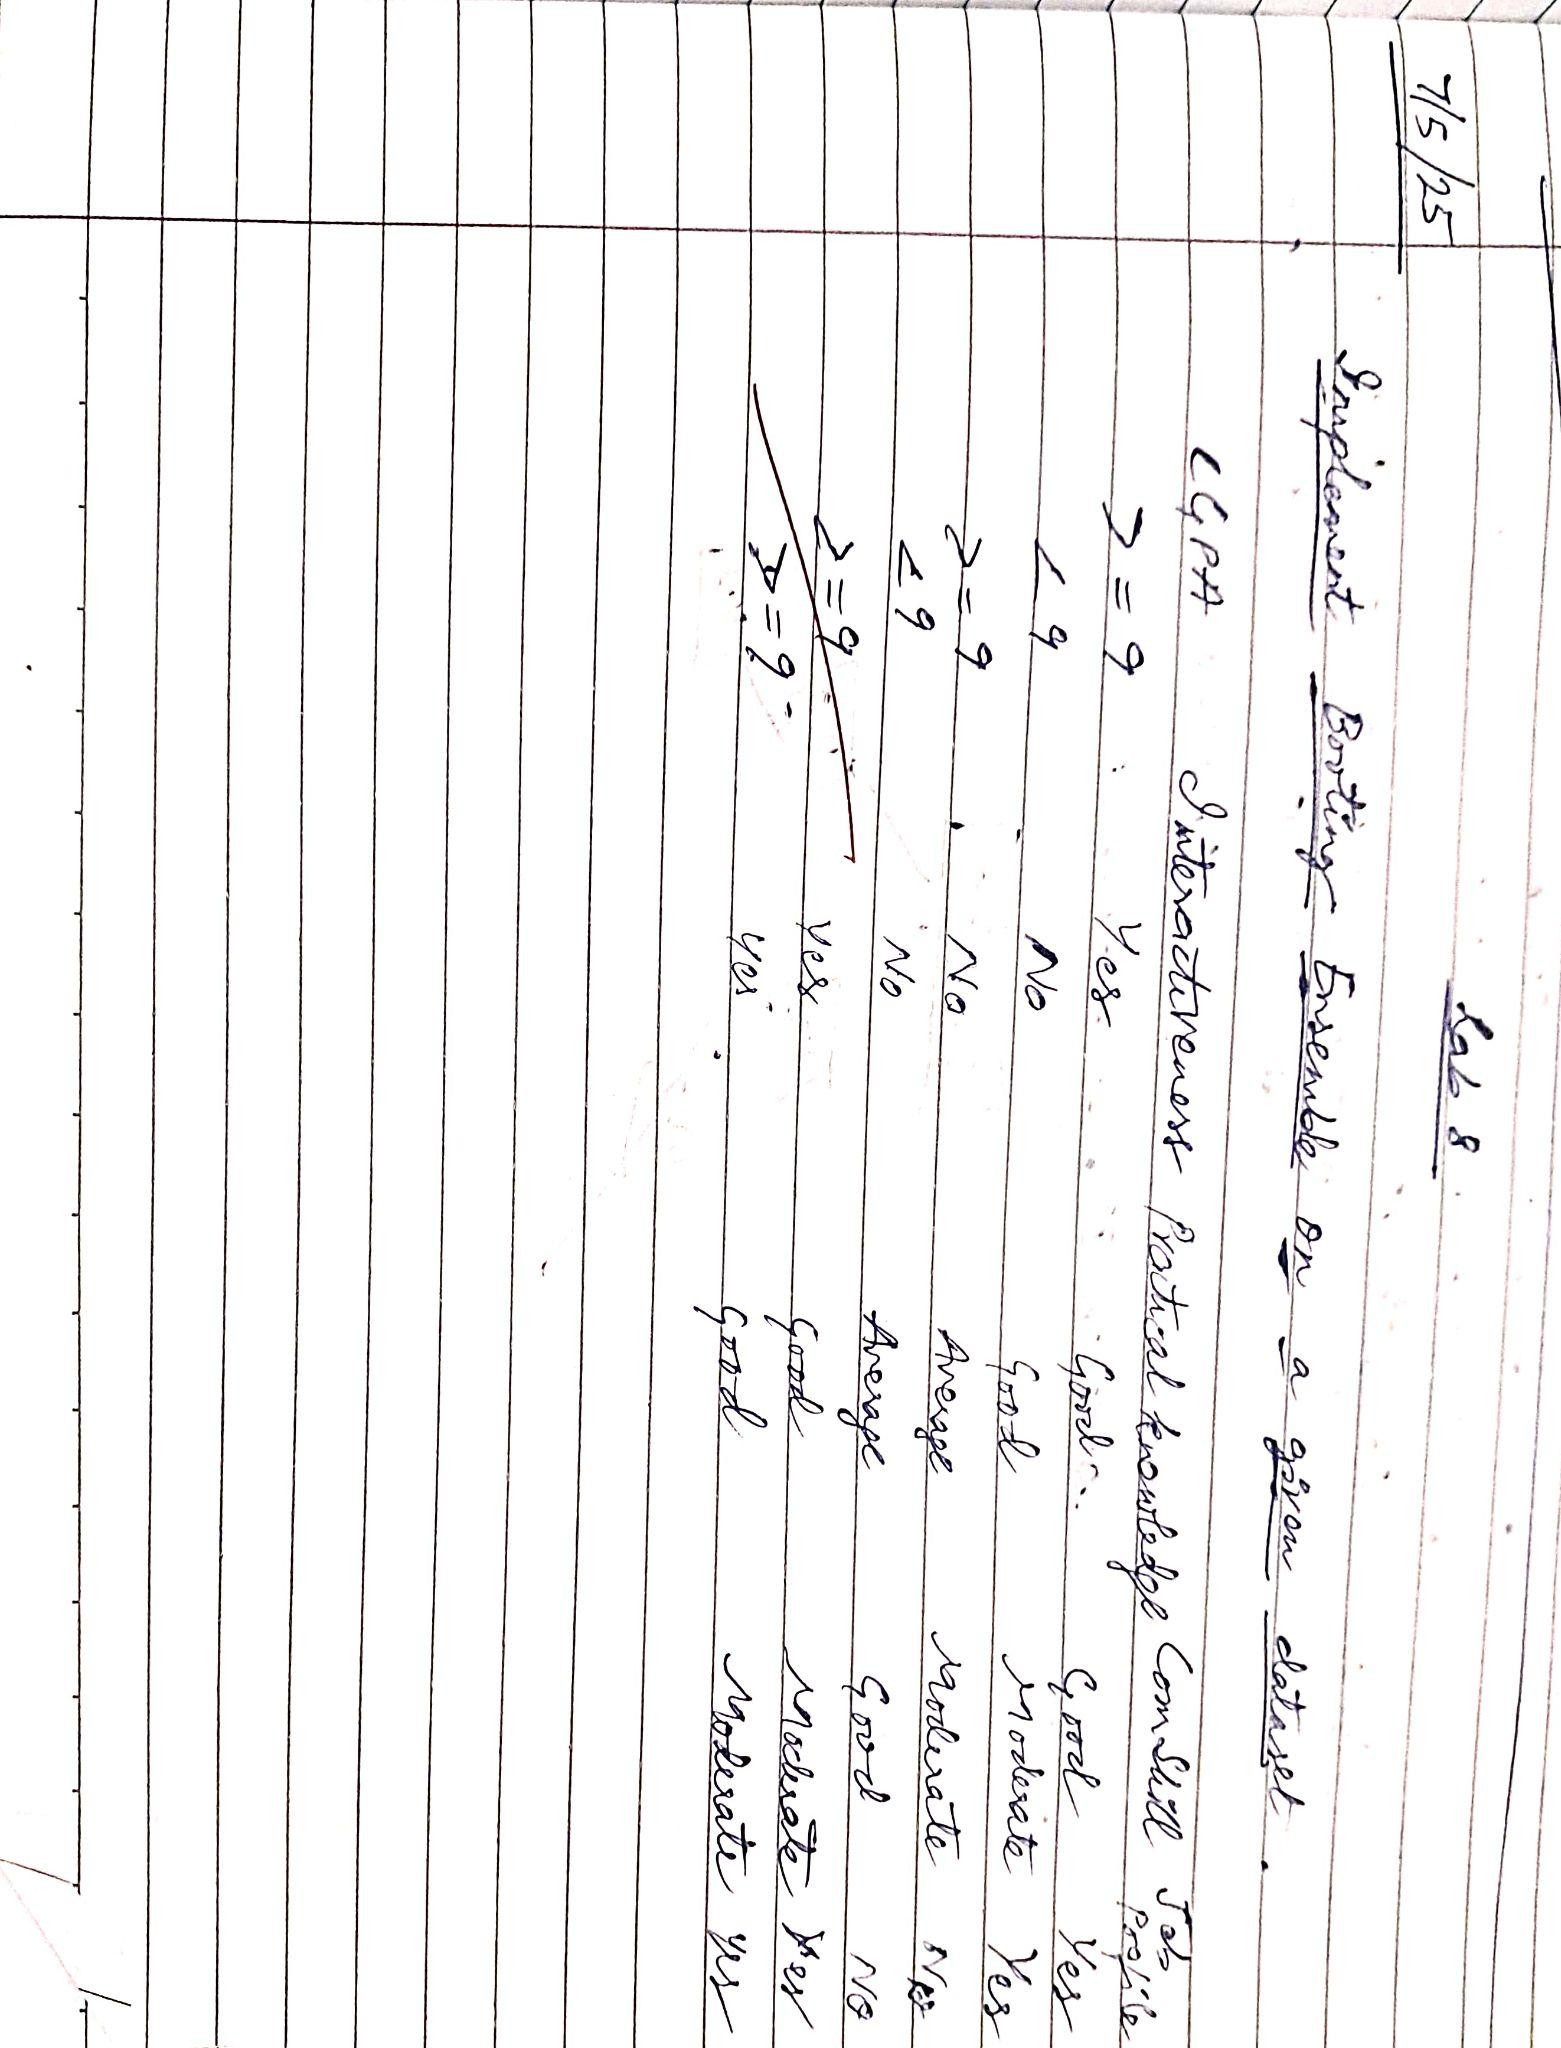 Lab 8
7/5/25
Implement Boosting Ensemble on a given dataset.
CGPA Interactiveness Pratical knowledge Com Skill Job Profile
>=9 Yes Good Good Yes
<9 No Good Moderate Yes
>=9 No Average Moderate No
<9 No Average Good No
>=9 Yes Good Moderate Yes
>=9 Yes Good Moderate Yes